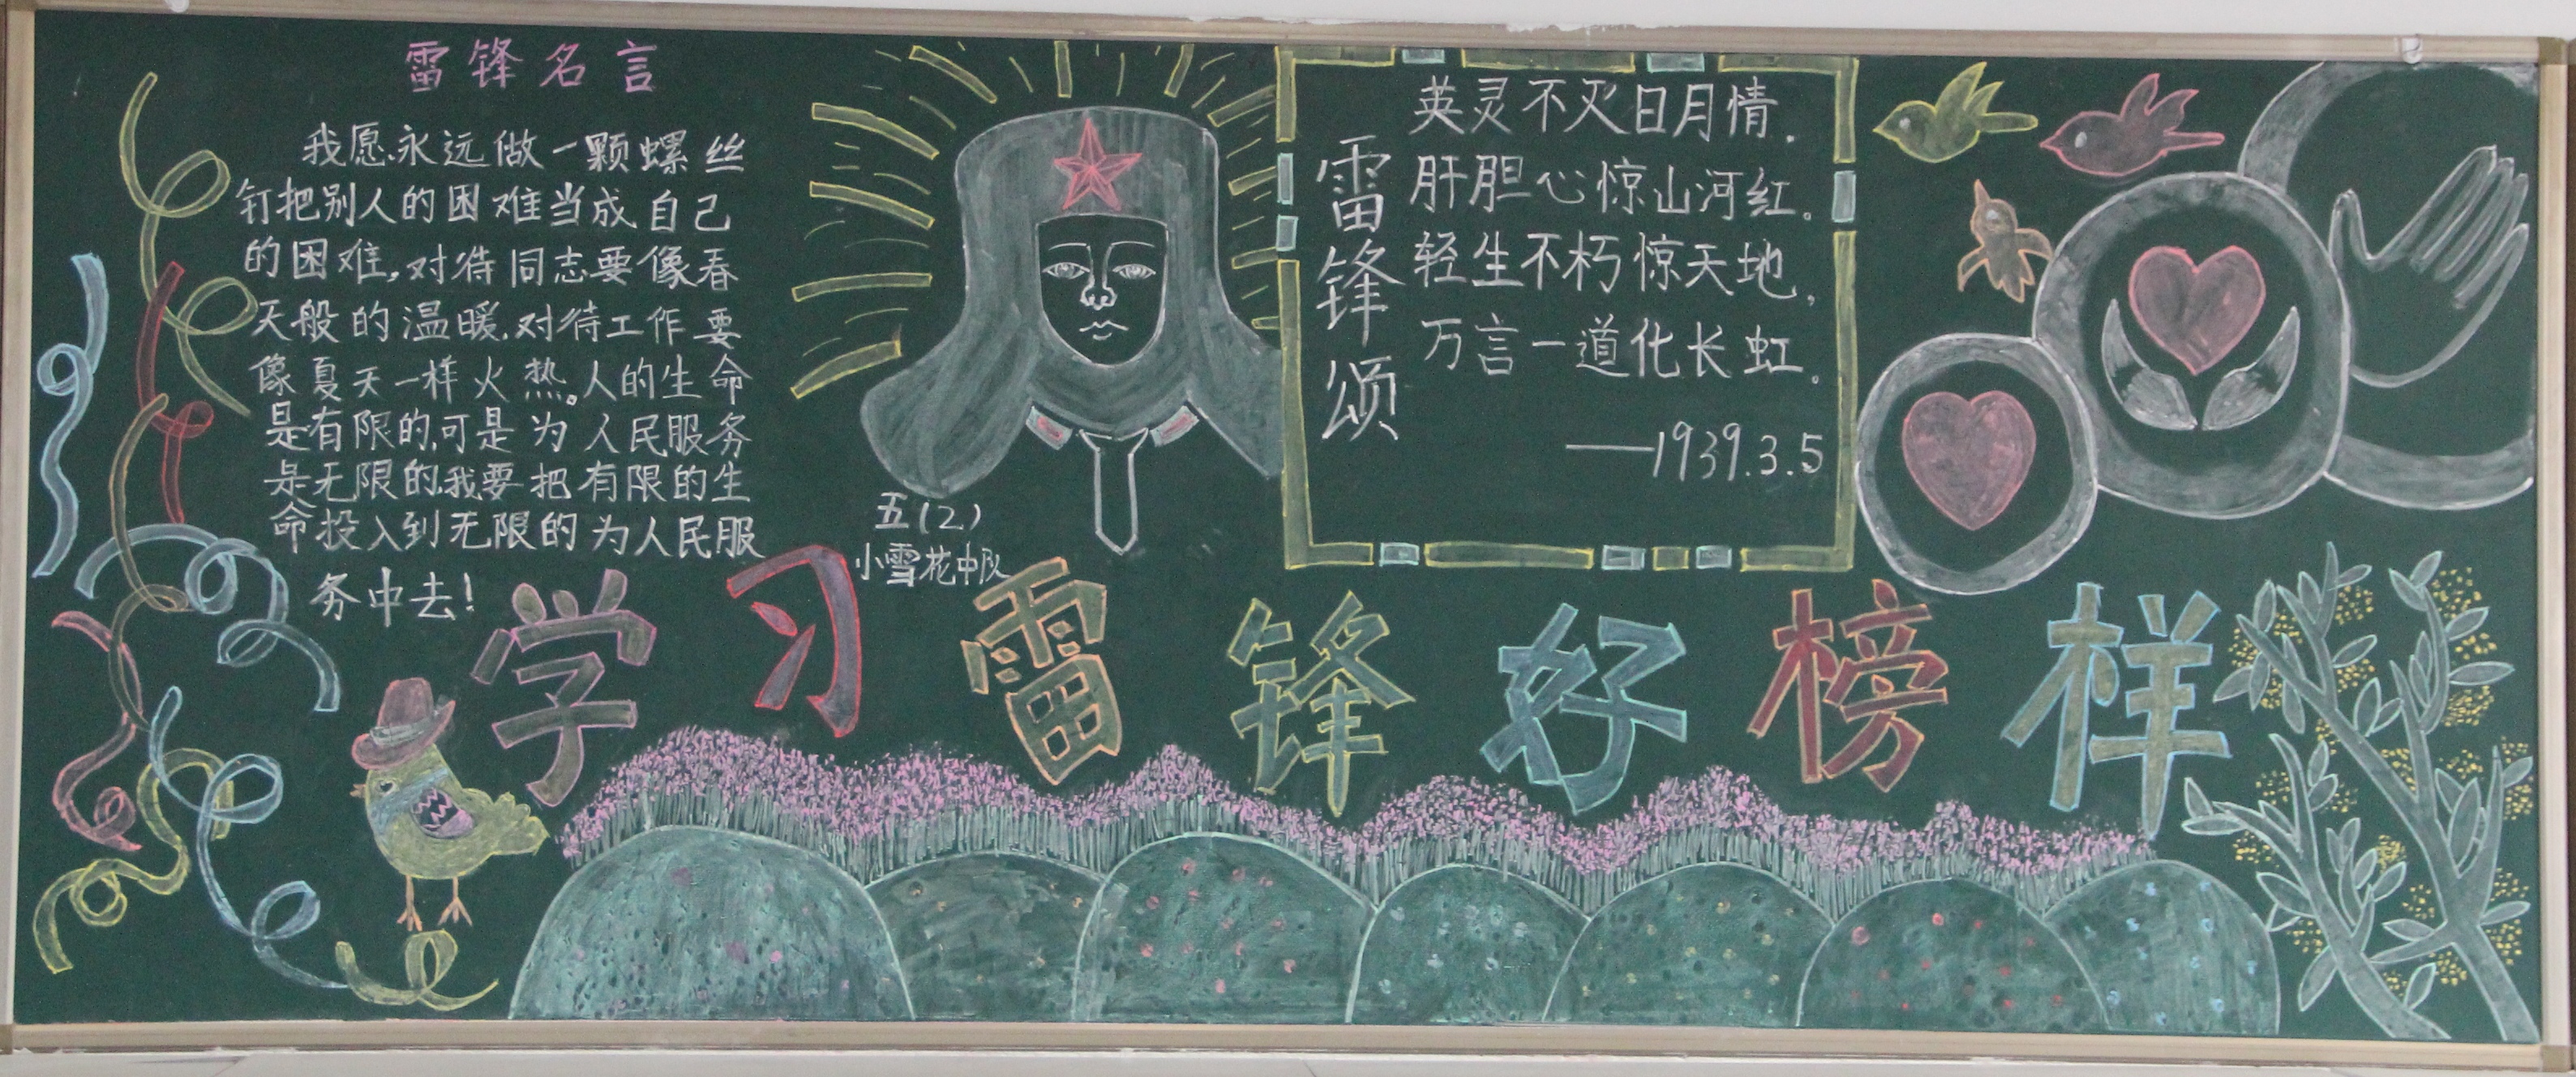 雷锋名言
我愿永远做一颗螺丝
钉把别人的困难当成自己
的困难,对待同志要像春
天般的温暖,对待工作要
像夏天一样火热。人的生命
是有限的,可是为人民服务
是无限的,我要把有限的生
命投入到无限的为人民服
务中去!
五(2)
小雪花中队
雷锋颂
英灵不灭日月情,
肝胆心惊山河红。
轻生不朽惊天地,
万言一道化长虹。
——1939.3.5
学习雷锋好榜样